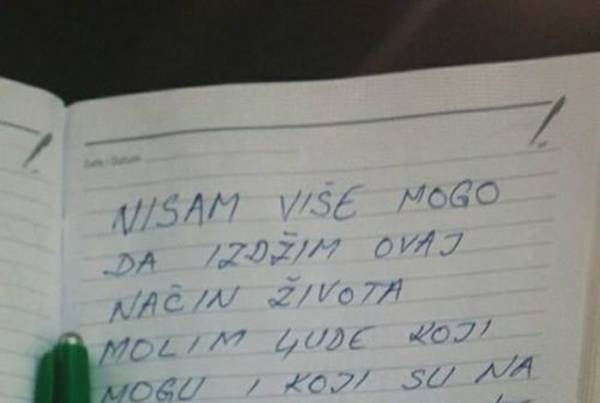 Date / Datum:
NISAM VIŠE MOGO
DA IZDŽIM OVAJ
NAČIN ŽIVOTA
MOLIM LJUDE KOJI
MOGU I KOJI SU NA